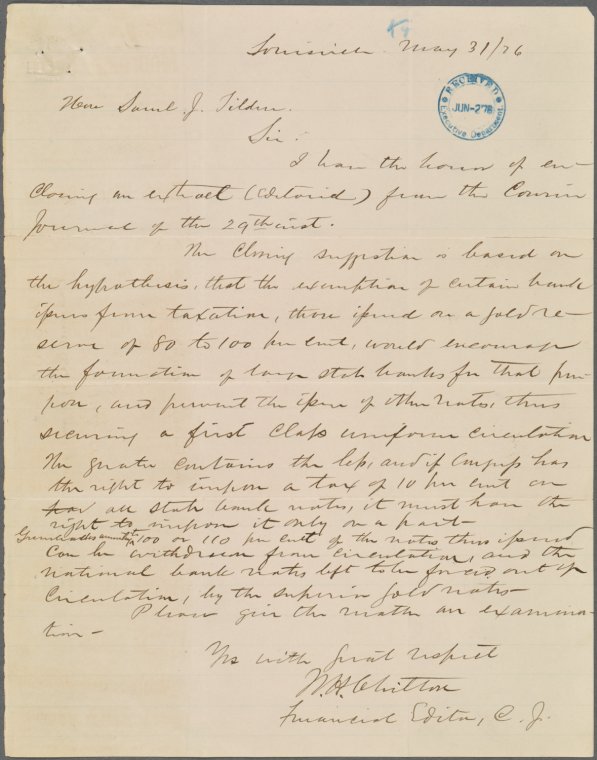 Louisville. May 31/76
RECEIVED
JUN-2 76
Executive Department.
Hon Saml. J. Tilden.
Sir.
I have the honor of en-
closing an extract (editorial) from the Courier
Journal of the 29th inst.
The closing suggestion is based on
the hypothesis, that the exemption of certain bank
issues from taxation, those issued on a gold re-
serve of 80 to 100 per cent, would encourage
the formation of large state banks for that pur-
pose, and prevent the issue of other notes, thus
securing a first class uniform circulation
The greater contains the less, and if Congress has
the right to impose a tax of 10 per cent on
all state bank notes, it must have the
right to impose it only on a part-
Greenbacks amounting to 100 or 110 per cent of the notes thus issued
can be withdrawn from circulation, and the
national bank notes left to be forced out of
circulation, by the superior gold notes-
Please give the matter an examina-
tion-
Yrs with great respect
W.H. Chilton
Financial Editor, C. J.